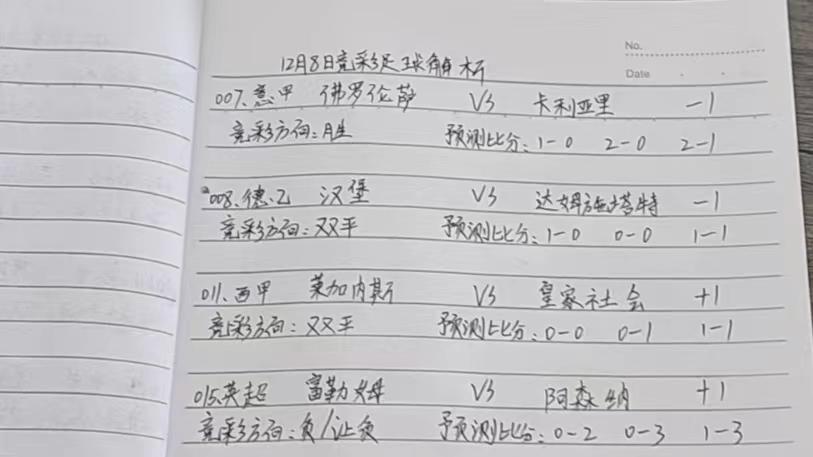 No.
Date
12月8日竞彩足球解析
007.意甲 佛罗伦萨 VS 卡利亚里 -1
竞彩方向:胜 预测比分:1-0 2-0 2-1
008.德乙 汉堡 VS 达姆施塔特 -1
竞彩方向:双平 预测比分:1-0 0-0 1-1
011.西甲 莱加内斯 VS 皇家社会 +1
竞彩方向:双平 预测比分:0-0 0-1 1-1
015.英超 富勒姆 VS 阿森纳 +1
竞彩方向:负/让负 预测比分:0-2 0-3 1-3